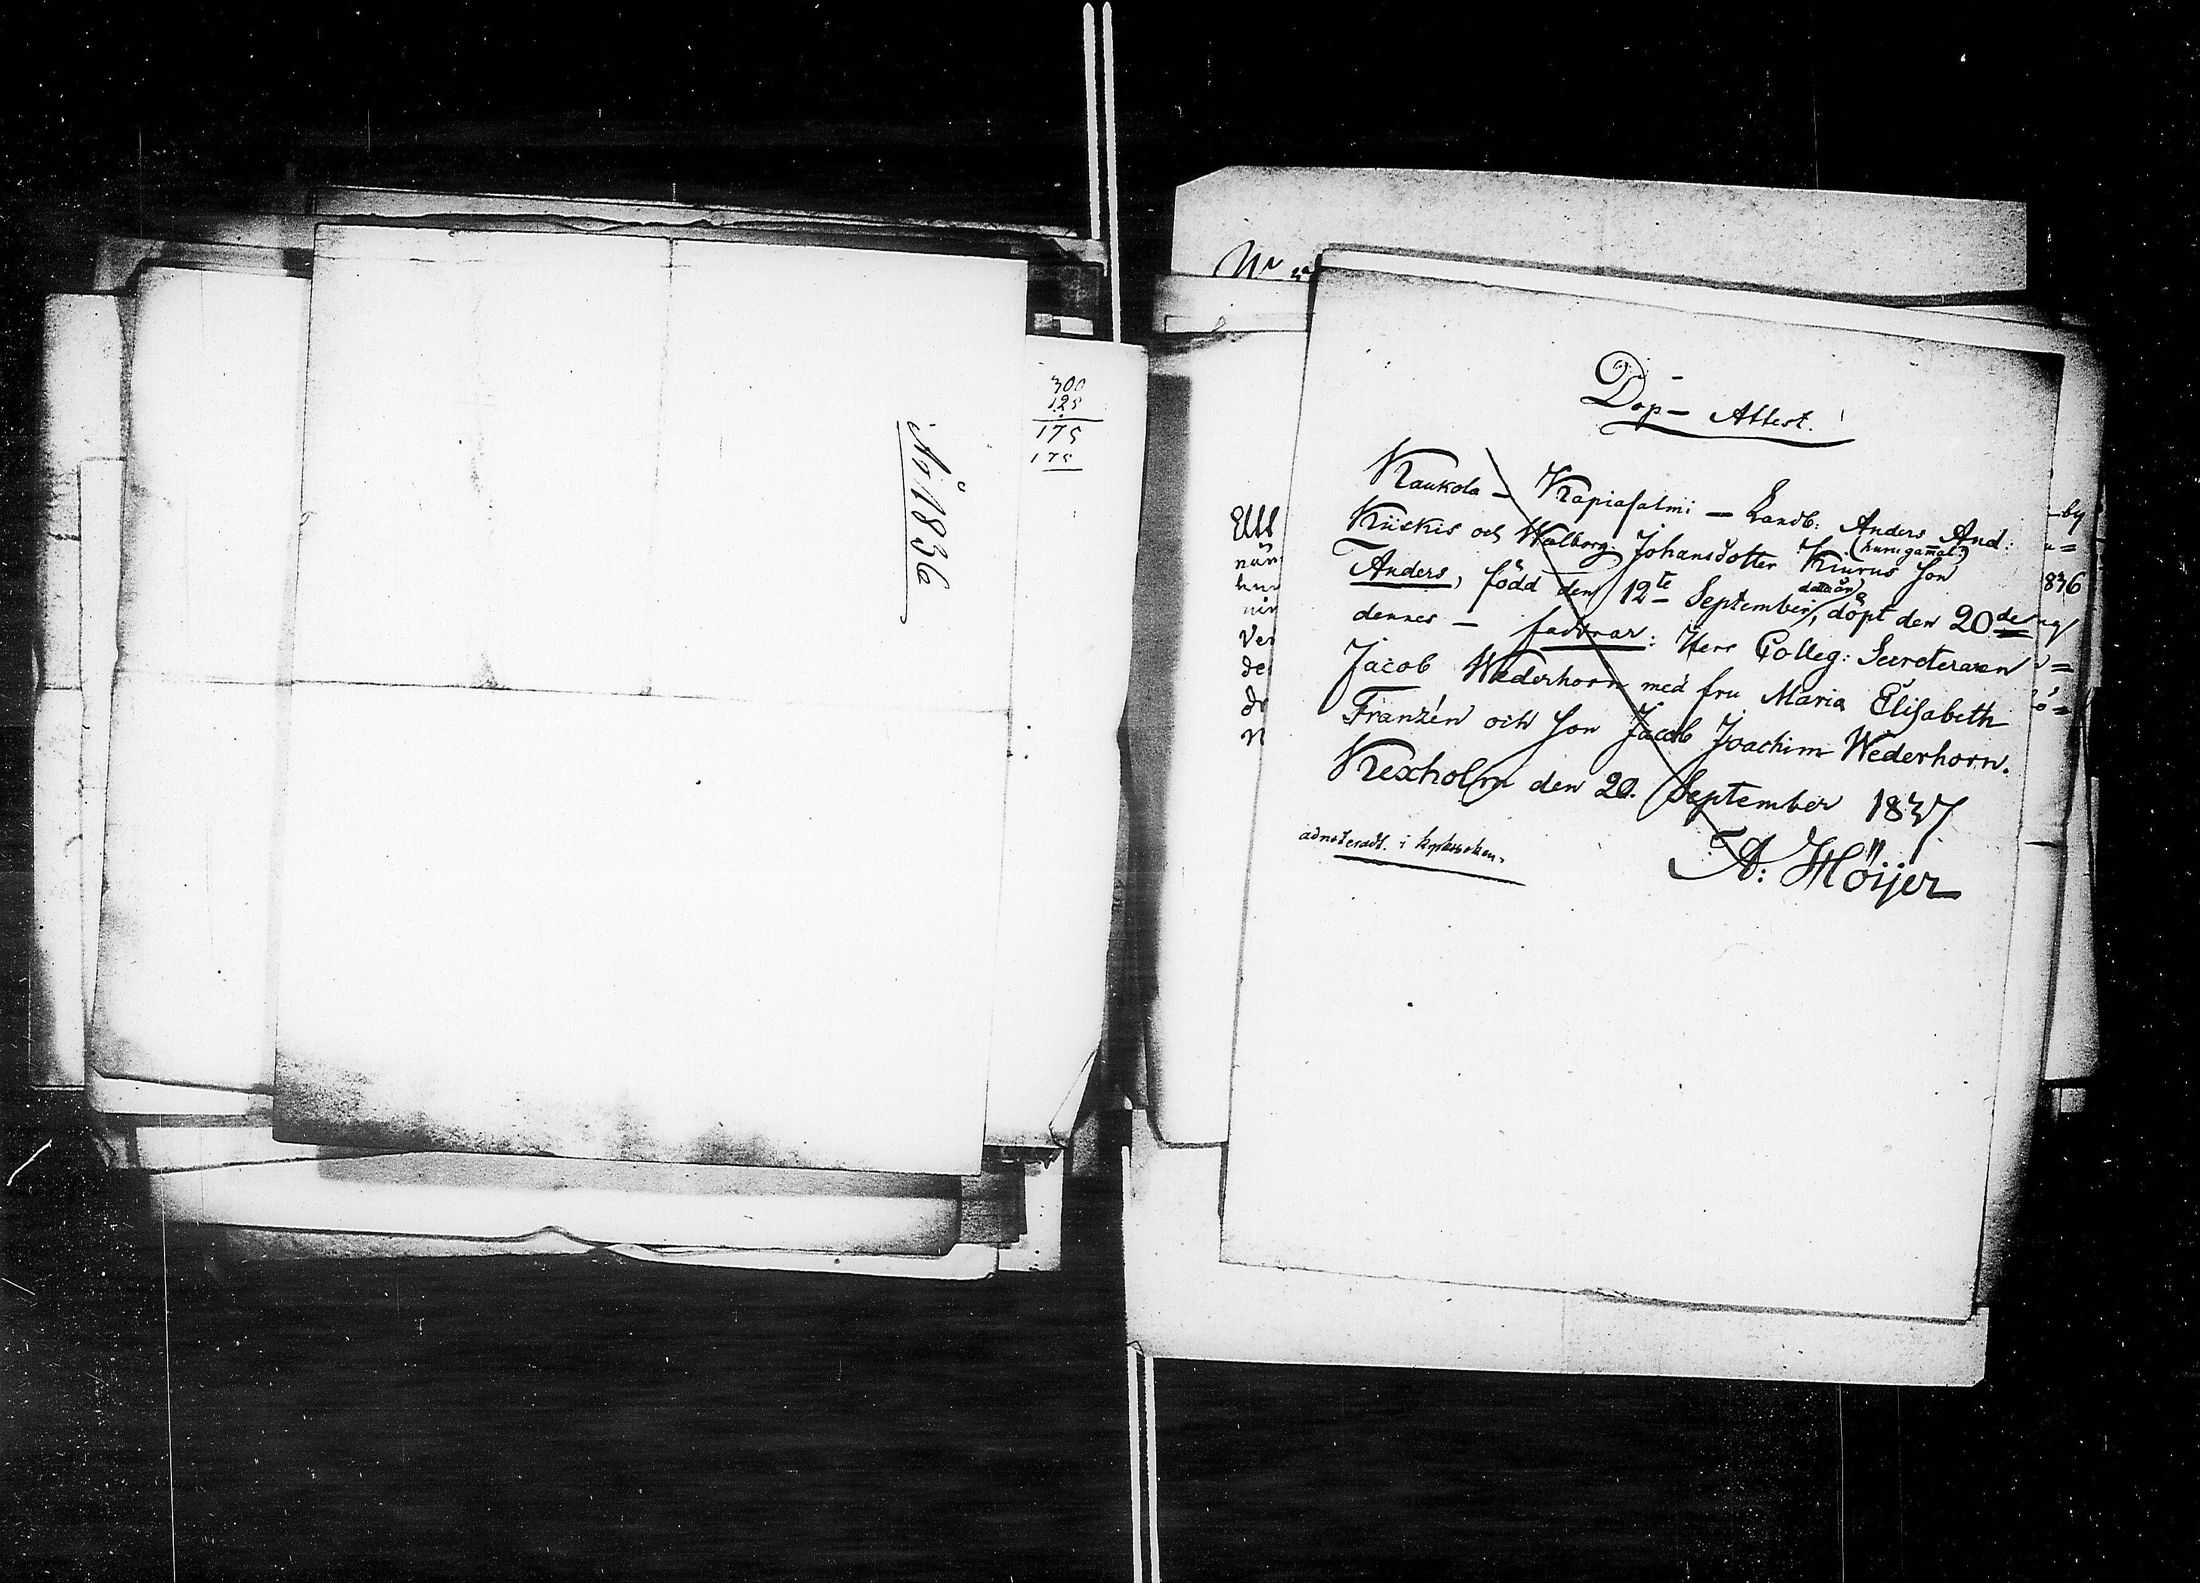 300
125
175
175
1836
Dop- Attest.
Kaukola - Kapiasalmi - Landb: Anders And:
Kiiskis och Walborg Johansdotter Kiurus son
(huru gammal?)
Anders, född den 12te September, döpt den 20de
dennes - faddrar: Herr Colleg: Secreteraren
Jacob Wederhorn med fru Maria Elisabeth
Franzén och son Jacob Joachim Wederhorn.
Kexholm den 20. September 1837
A: Höijer
adnoteradt. i kyrkboken.
-by
836